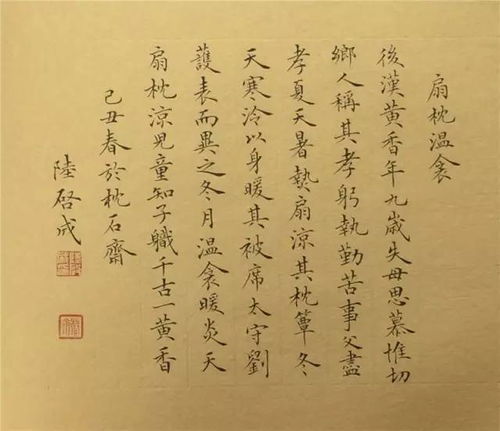 扇枕温衾
後漢黄香年九歲失母思慕惟切
鄉人稱其孝躬執勤苦事父盡
孝夏天暑熱扇涼其枕簟冬
天寒冷以身暖其被席太守劉
護表而異之冬月温衾暖炎天
扇枕涼兒童知子職千古一黄香
己丑春於枕石齋
陸啓成